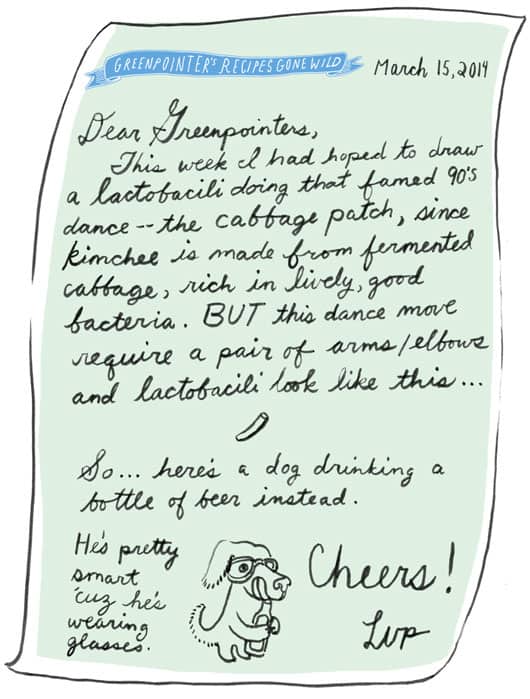 GREENPOINTER'S RECIPES GONE WILD
March 15, 2014
Dear Greenpointers,
This week I had hoped to draw
a lactobacili doing that famed 90's
dance -- the cabbage patch, since
kimchee is made from fermented
cabbage, rich in lively, good
bacteria. BUT this dance move
require a pair of arms/elbows
and lactobacili look like this...
So... here's a dog drinking a
bottle of beer instead.
He's pretty
smart
'cuz he's
wearing
glasses.
Cheers!
Lvp